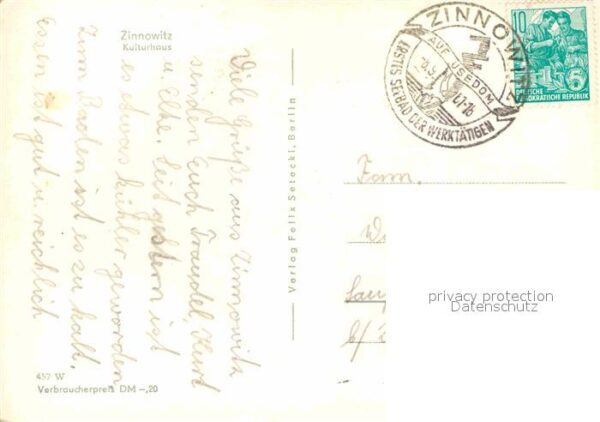 Zinnowitz
Kulturhaus
Viele Grüße aus Zinnowitz
senden Euch Traudel, Kurt
u. Elke. Seit gestern ist
es etwas kühler geworden
Zum Baden ist es zu kalt.
Essen ist gut u. reichlich
457 W
Verbraucherpreis DM -,20
Verlag Felix Setecki, Berlin
ZINNOWITZ
AUF USEDOM
ERSTES SEEBAD DER WERKTÄTIGEN
10
5
DEUTSCHE
DEMOKRATISCHE REPUBLIK
Fam.
privacy protection
Datenschutz